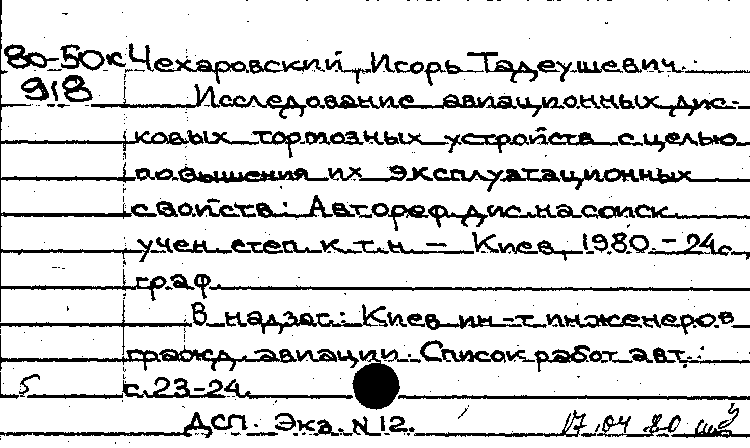 80-50к Чехаровский, Игорь Тадеушевич.
918 Исследование авиационных дис-
ковых тормозных устройств с целью
повышения их эксплуатационных
свойств: Автореф. дис. на соиск.
учен. степ. к. т. н. — Киев, 1980. — 24 с.,
граф.
В надзаг.: Киев. ин-т инженеров
гражд. авиации. Список работ авт.:
5 с. 23-24.
ДСП. Экз. N 12. 17.04 80